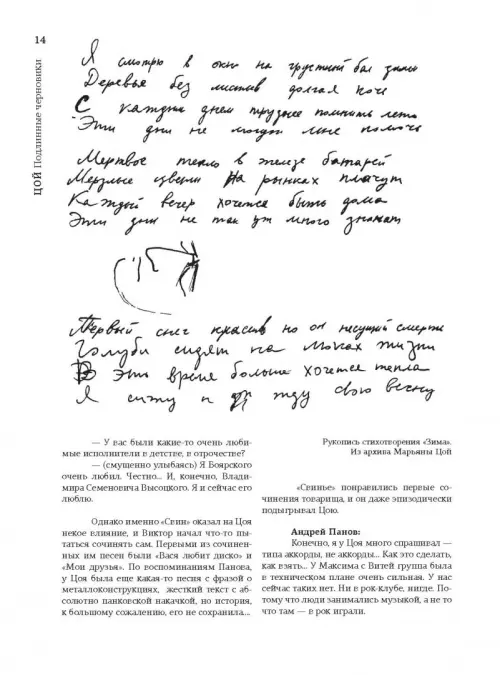 14
ЦОЙ Подлинные черновики
Я смотрю в окно на грустный бал зимы
Деревья без листьев долгая ночь
С каждым днем труднее помнить лето
Эти дни не могут мне помочь
Мертвое тепло в железе батарей
Мерзлые цветы на рынках плачут
Каждый вечер хочется быть дома
Эти дни не так уж много значат
Первый снег красив но он несущий смерть
Голуби сидят на люках жизни
В это время больше хочется тепла
Я сижу и жду свою весну
— У вас были какие-то очень люби-
мые исполнители в детстве, в отрочестве?
— (смущенно улыбаясь) Я Боярского
очень любил. Честно... И, конечно, Влади-
мира Семеновича Высоцкого. Я и сейчас его
люблю.
Однако именно «Свин» оказал на Цоя
некое влияние, и Виктор начал что-то пы-
таться сочинять сам. Первыми из сочинен-
ных им песен были «Вася любит диско» и
«Мои друзья». По воспоминаниям Панова,
у Цоя была еще какая-то песня с фразой о
металлоконструкциях, жесткий текст с аб-
солютно панковской накачкой, но история,
к большому сожалению, его не сохранила...
Рукопись стихотворения «Зима».
Из архива Марьяны Цой
«Свинье» понравились первые со-
чинения товарища, и он даже эпизодически
подыгрывал Цою.
Андрей Панов:
Конечно, я у Цоя много спрашивал —
типа аккорды, не аккорды... Как это сделать,
как взять... У Максима с Витей группа была
в техническом плане очень сильная. У нас
сейчас таких нет. Ни в рок-клубе, нигде. По-
тому что люди занимались музыкой, а не то
что там — в рок играли.